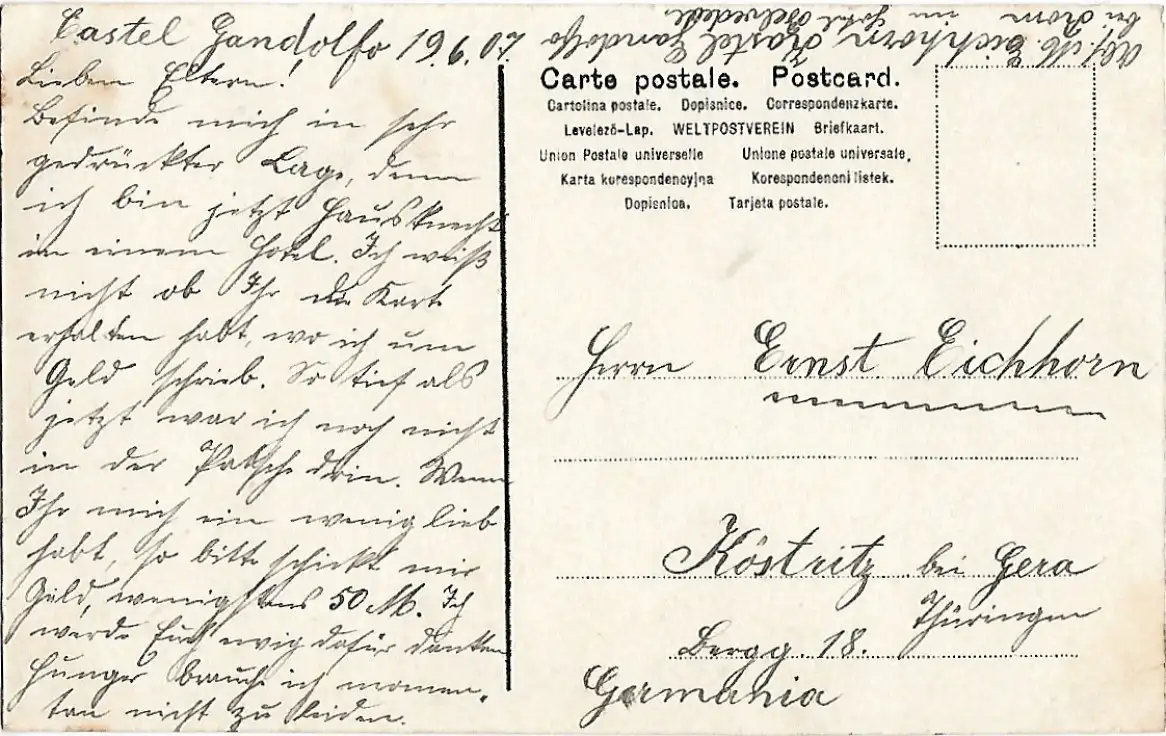 Castel Gandolfo 19.6.07.
Lieben Eltern!
Befinde mich in sehr
gedrückter Lage, denn
ich bin jetzt Hausknecht
in einem Hotel. Ich weiß
nicht ob Ihr die Karte
erhalten habt, wo ich um
Geld schrieb. So tief als
jetzt war ich noch nicht
in der Patsche drin. Wenn
Ihr mich ein wenig lieb
habt, so bitte schickt mir
Geld, wenigstens 50 M. Ich
werde Euch ewig dafür danken
Hunger brauche ich momen-
tan nicht zu leiden.
Abs. M. Eichhorn, Kastel Gandolfo
bei Rom im Hotel Belvedere
Carte postale. Postcard.
Cartolina postale. Dopisnice. Correspondenzkarte.
Levelező-Lap. WELTPOSTVEREIN Briefkaart.
Union Postale universelle Unione postale universale,
Karta korespondencyjna Korespondencni listek.
Dopisnica. Tarjeta postale.
Herrn Ernst Eichhorn
Köstritz bei Gera
Thüringen
Bergg. 18.
Germania